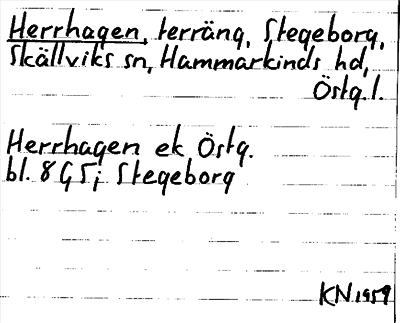 Herrhagen, terräng, Stegeborg,
Skällviks sn, Hammarkinds hd,
Östg. l.
Herrhagen ek Östg.
bl. 8 G 5 i Stegeborg
KN 1959